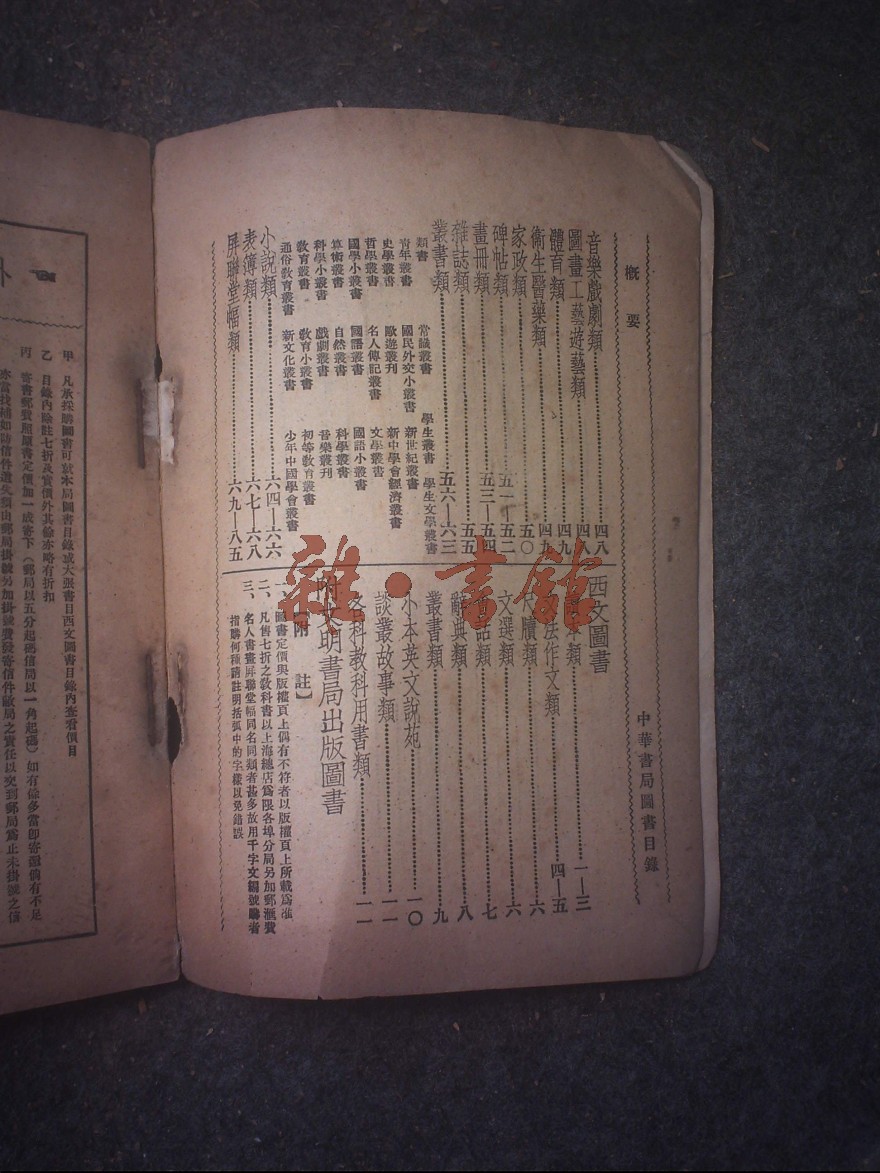 概要
中華書局圖書目錄
音樂戲劇類 四八
圖畫工藝遊藝類 四八
體育類 四九
衛生醫藥類 四九
家政類 五〇
碑帖類 五一—五二
畫冊類 五三—五四
雜誌類 五五
叢書類 五六—六三
類書 常識叢書 學生叢書 學生文學叢書
青年叢書 國民外交小叢書 新世紀叢書
史學叢書 歐遊叢刊 新中學會經濟叢書
哲學叢書 名人傳記叢書 文學叢書
國學小叢書 國語叢書 國語小叢書
算術叢書 自然叢書 科學叢書
科學小叢書 戲劇叢書 音樂叢刊
教育叢書 教育小叢書 初等教育叢書
通俗教育叢書 新文化叢書 少年中國學會叢書
小說類 六四—六六
表簿類 六七—六八
屏聯堂幅類 六九—八五
西文圖書
本類 一—三
法作文類 四—五
尺牘類 六
文選類 六
話類 七
辭典類 八
叢書類 九
小本英文說苑 一〇
談叢故事類 一一
各科教科用書類 一一
附文明書局出版圖書
【附註】
一、圖書定價與版權頁上偶有不符者以版權頁上所載為准
二、凡售七折之教科書以上海總店為限各埠分局另加郵滙費
三、名人書畫屏聯堂幅同名同類者甚多故用千字文編號購者
指購何種請註明括弧中的字樣以免錯誤
甲 凡承採購圖書可就本局圖書目錄或大張書目西文圖書目錄內查看價目
乙 目錄內除註七折及實價外其餘亦略有折扣
丙 寄書郵費照原書定價加一成寄下（郵局以五分起碼信局以一角起碼）如有餘多當即寄還倘有不足
雜·書館